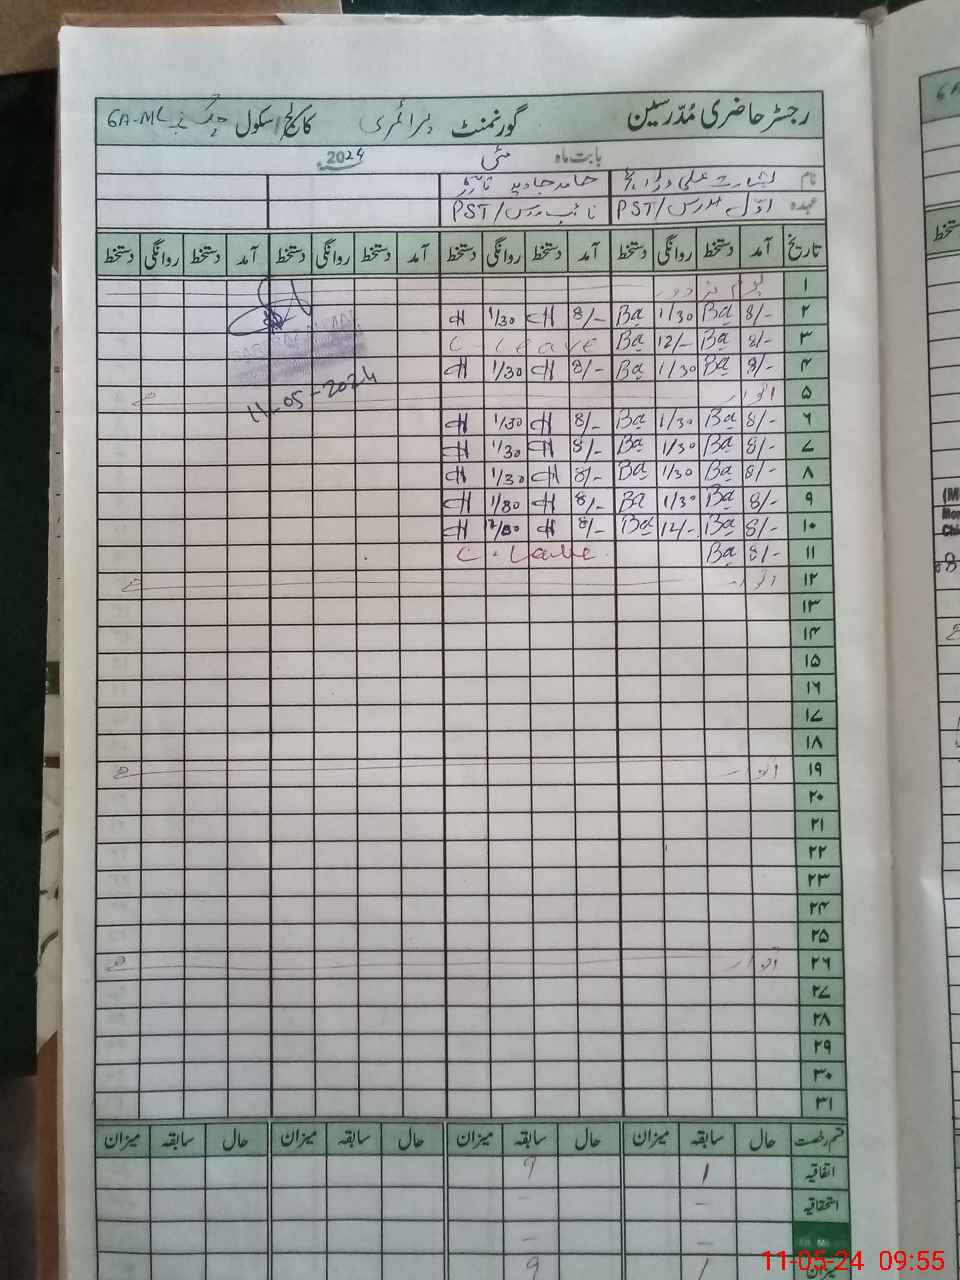 رجسٹر حاضری مُدّرسین گورنمنٹ پرائمری کالج/سکول چک نمبر 6A-ML
بابت ماہ مئی 2024
نام بشارت علی وڑائچ حامد جاوید
عہدہ اوّل مدرس/PST نائب مدرس/PST
تاریخ آمد دستخط روانگی دستخط آمد دستخط روانگی دستخط آمد دستخط روانگی دستخط آمد دستخط روانگی دستخط
۱ یوم مزدور
۲ 8/- Ba 1/30 Ba 8/- H 1/30 H
۳ 8/- Ba 12/- Ba C-Leave
۴ 8/- Ba 1/30 Ba 8/- H 1/30 H
11-05-2024
۵ اتوار
۶ 8/- Ba 1/30 Ba 8/- H 1/30 H
۷ 8/- Ba 1/30 Ba 8/- H 1/30 H
۸ 8/- Ba 1/30 Ba 8/- H 1/30 H
۹ 8/- Ba 1/30 Ba 8/- H 1/30 H
۱۰ 8/- Ba 12/- Ba 8/- H H
۱۱ 8/- Ba C-Leave
۱۲ اتوار
۱۳
۱۴
۱۵
۱۶
۱۷
۱۸
۱۹ اتوار
۲۰
۲۱
۲۲
۲۳
۲۴
۲۵
۲۶ اتوار
۲۷
۲۸
۲۹
۳۰
۳۱
قسم رخصت حال سابقہ میزان حال سابقہ میزان حال سابقہ میزان حال سابقہ میزان
اتفاقیہ 1 9
استحقاقیہ - -
- -
میزان 1 9
11-05-24 09:55